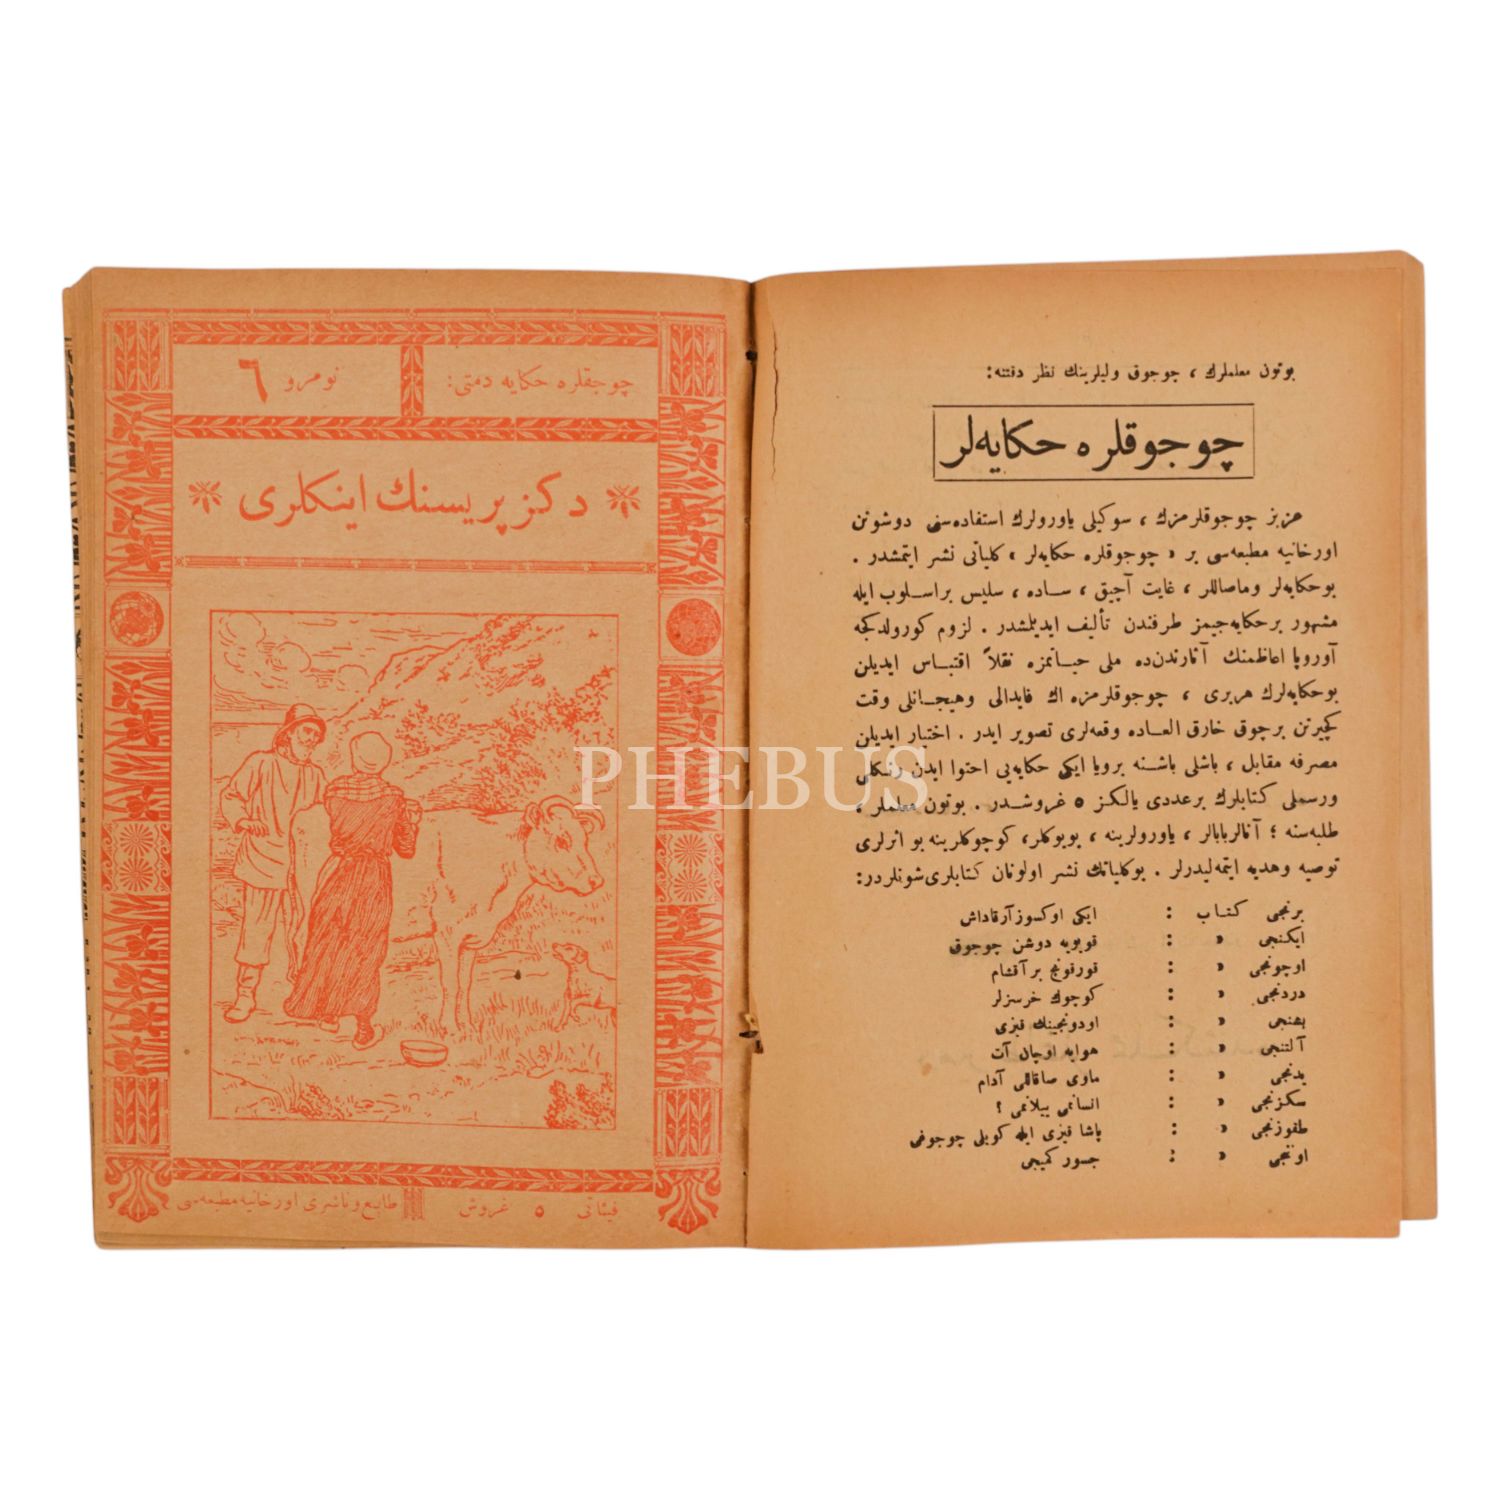 بوتون معلملرك ، چوجوق وليلرينك نظر دقتنه :
چوجوقلره حكايه‌لر
عزيز چوجوقلرمزك ، سوكيلى ياورولرك استفاده‌سنى دوشونن
اورخانيه مطبعه‌سى بر « چوجوقلره حكايه‌لر » كلياتى نشر ايتمشدر .
بوحكايه‌لر وماصاللر ، غايت آچيق ، ساده ، سليس براسلوب ايله
مشهور برحكايه‌جيمز طرفندن تأليف ايديلمشدر . لزوم كورولدكجه
آوروپا اعاظمنك آثارندن‌ده ملى حياتمزه نقلاً اقتباس ايديلن
بوحكايه‌لرك هربرى ، چوجوقلرمزه اك فايدالى وهيجانلى وقت
كچيرتن برچوق خارق العاده وقعه‌لرى تصوير ايدر . اختيار ايديلن
مصرفه مقابل ، باشلى باشنه برويا ايكى حكايه‌يى احتوا ايدن رنكلى
ورسملى كتابلرك برعددى يالكز ٥ غروشدر . بوتون معلملر ،
طلبه‌سنه ؛ آنالربابالر ، ياورولرينه ، بويوكلر، كوچوكلرينه بو اثرلرى
توصيه وهديه ايتمه‌ليدرلر . بوكلياتك نشر اولونان كتابلرى شونلردر:
برنجى كتاب : ايكى اوكسوز آرقاداش
ايكنجى » : قويويه دوشن چوجوق
اوچونجى » : قورقونج برآقشام
دردنجى » : كوچوك خرسزلر
بشنجى » : اودونجينك قيزى
آلتنجى » : هوايه اوچان آت
يدنجى » : ماوى صاقاللى آدام
سكزنجى » : انسانمى ييلانمى ؟
طقوزنجى » : پاشا قيزى ايله كويلى چوجوغى
اوننجى » : جسور كميجى
چوجقلره حكايه دمتى :
نومرو ٦
دكز پريسنك اينكلرى
فيئاتى ٥ غروش
طابع و ناشرى اورخانيه مطبعه‌سى
PHEBUS